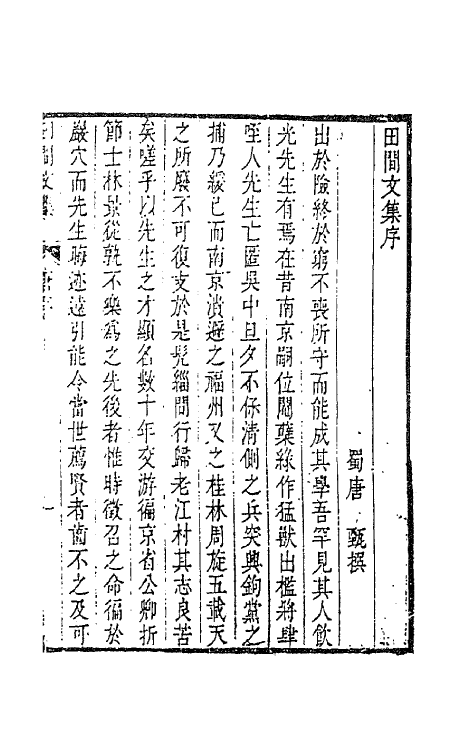 田間文集序
蜀唐甄撰
出於險終於窮不喪所守而能成其學吾罕見其人飲
光先生有焉在昔南京嗣位閹孽綠作猛獸出檻將肆
咥人先生亡匿吳中旦夕不保清側之兵突興鉤黨之
捕乃緩已而南京潰遯之福州又之桂林周旋五載天
之所廢不可復支於是髡緇間行歸老江村其志良苦
矣嗟乎以先生之才顯名數十年交游徧京省公卿折
節士林景從孰不樂爲之先後者惟時徵召之命徧於
巖穴而先生晦迹遠引能令當世薦賢者齒不之及可